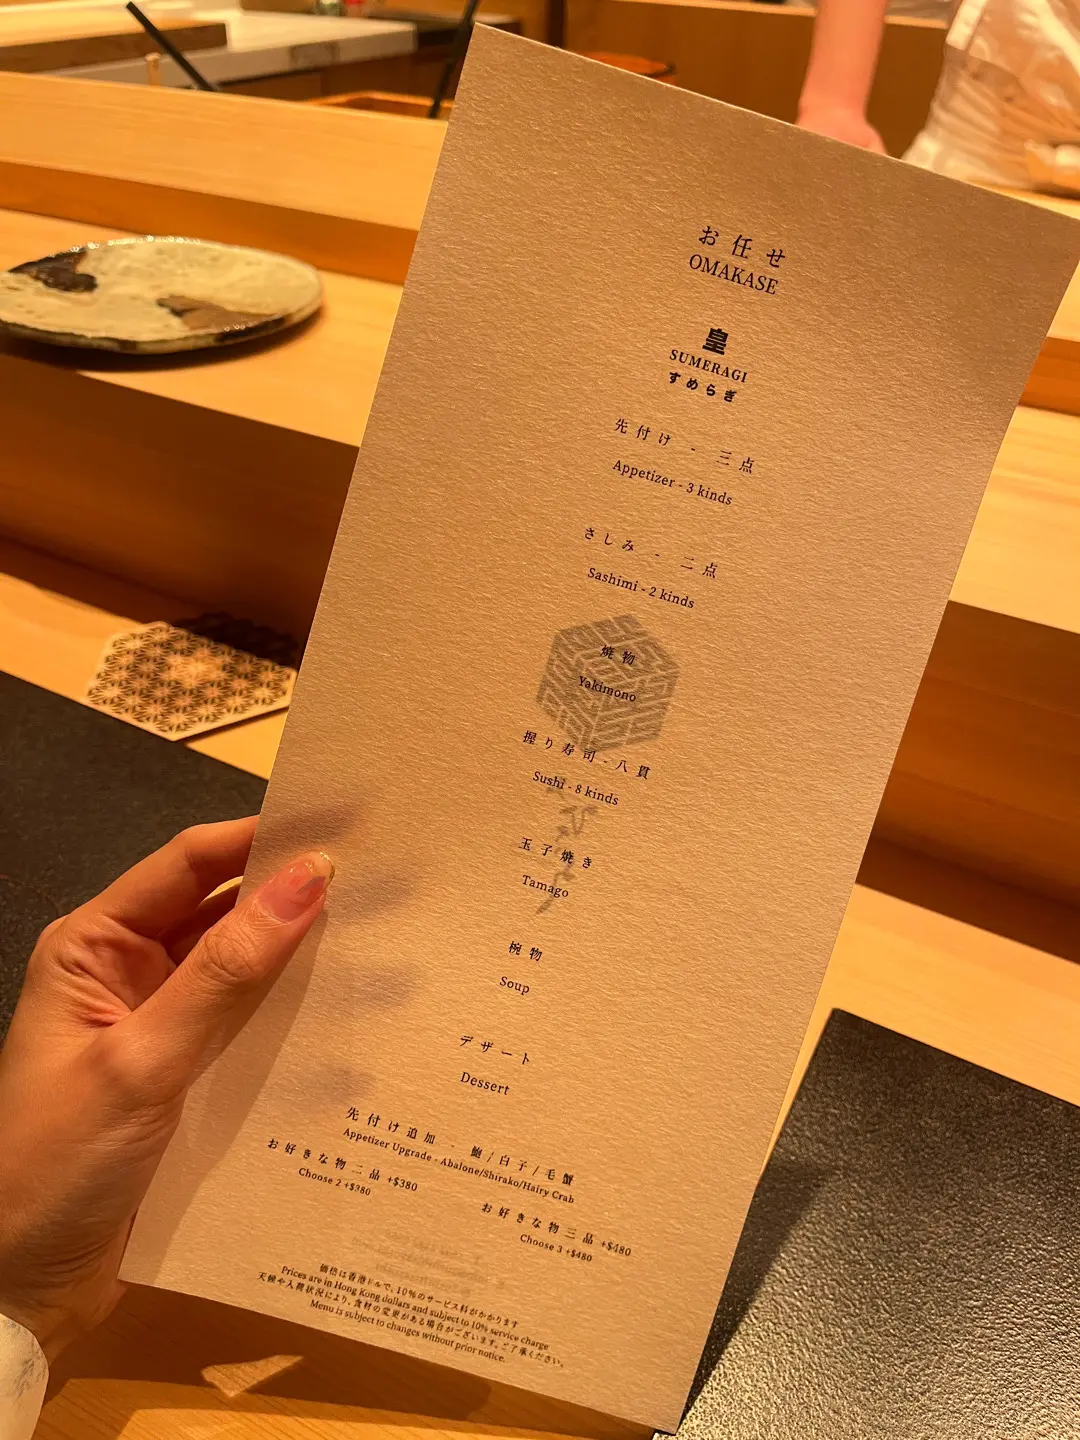 お任せ
OMAKASE
皇
SUMERAGI
すめらぎ
先付け - 三点
Appetizer - 3 kinds
さしみ - 二点
Sashimi - 2 kinds
焼物
Yakimono
握り寿司 - 八貫
Sushi - 8 kinds
玉子焼き
Tamago
椀物
Soup
デザート
Dessert
先付け追加 - 鮑/白子/毛蟹
Appetizer Upgrade - Abalone/Shirako/Hairy Crab
お好きな物二品 +$380
Choose 2 +$380
お好きな物三品 +$480
Choose 3 +$480
価格は香港ドルで、10%のサービス料がかかります
Prices are in Hong Kong dollars and subject to 10% service charge
天候や入荷状況により、食材の変更がある場合がございます。ご了承ください。
Menu is subject to changes without prior notice.